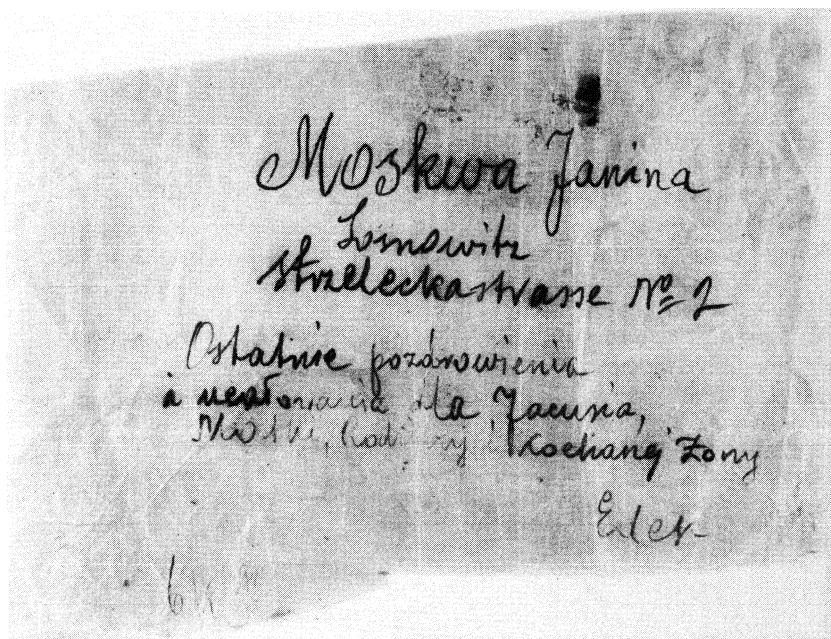 Moskwa Janina
Łosnowitz
Strzeleckastrasse № 2
Ostatnie pozdrowienia
i ucałowania dla Jacusia,
Matki, Rodziny i Kochanej Żony